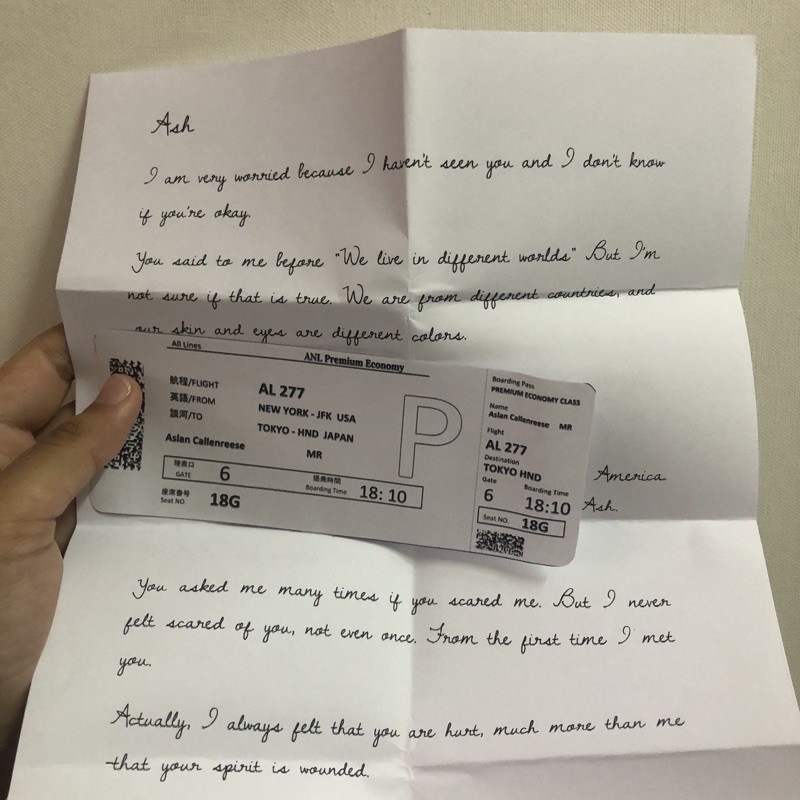 Ash
I am very worried because I haven't seen you and I don't know
if you're okay.
You said to me before "We live in different worlds" But I'm
not sure if that is true. We are from different countries, and
our skin and eyes are different colors.
All Lines
ANL Premium Economy
航程/FLIGHT AL 277
英語/FROM NEW YORK - JFK USA
談河/TO TOKYO - HND JAPAN
Aslan Callenreese MR
P
GATE 6 Boarding Time 18:10
座席番号
Seat NO. 18G
Boarding Pass
PREMIUM ECONOMY CLASS
Name
Aslan Callenreese MR
Flight
AL 277
Destination
TOKYO HND
Gate Boarding Time
6 18:10
Seat NO. 18G
America
Ash.
You asked me many times if you scared me. But I never
felt scared of you, not even once. From the first time I met
you.
Actually, I always felt that you are hurt, much more than me
that your spirit is wounded.